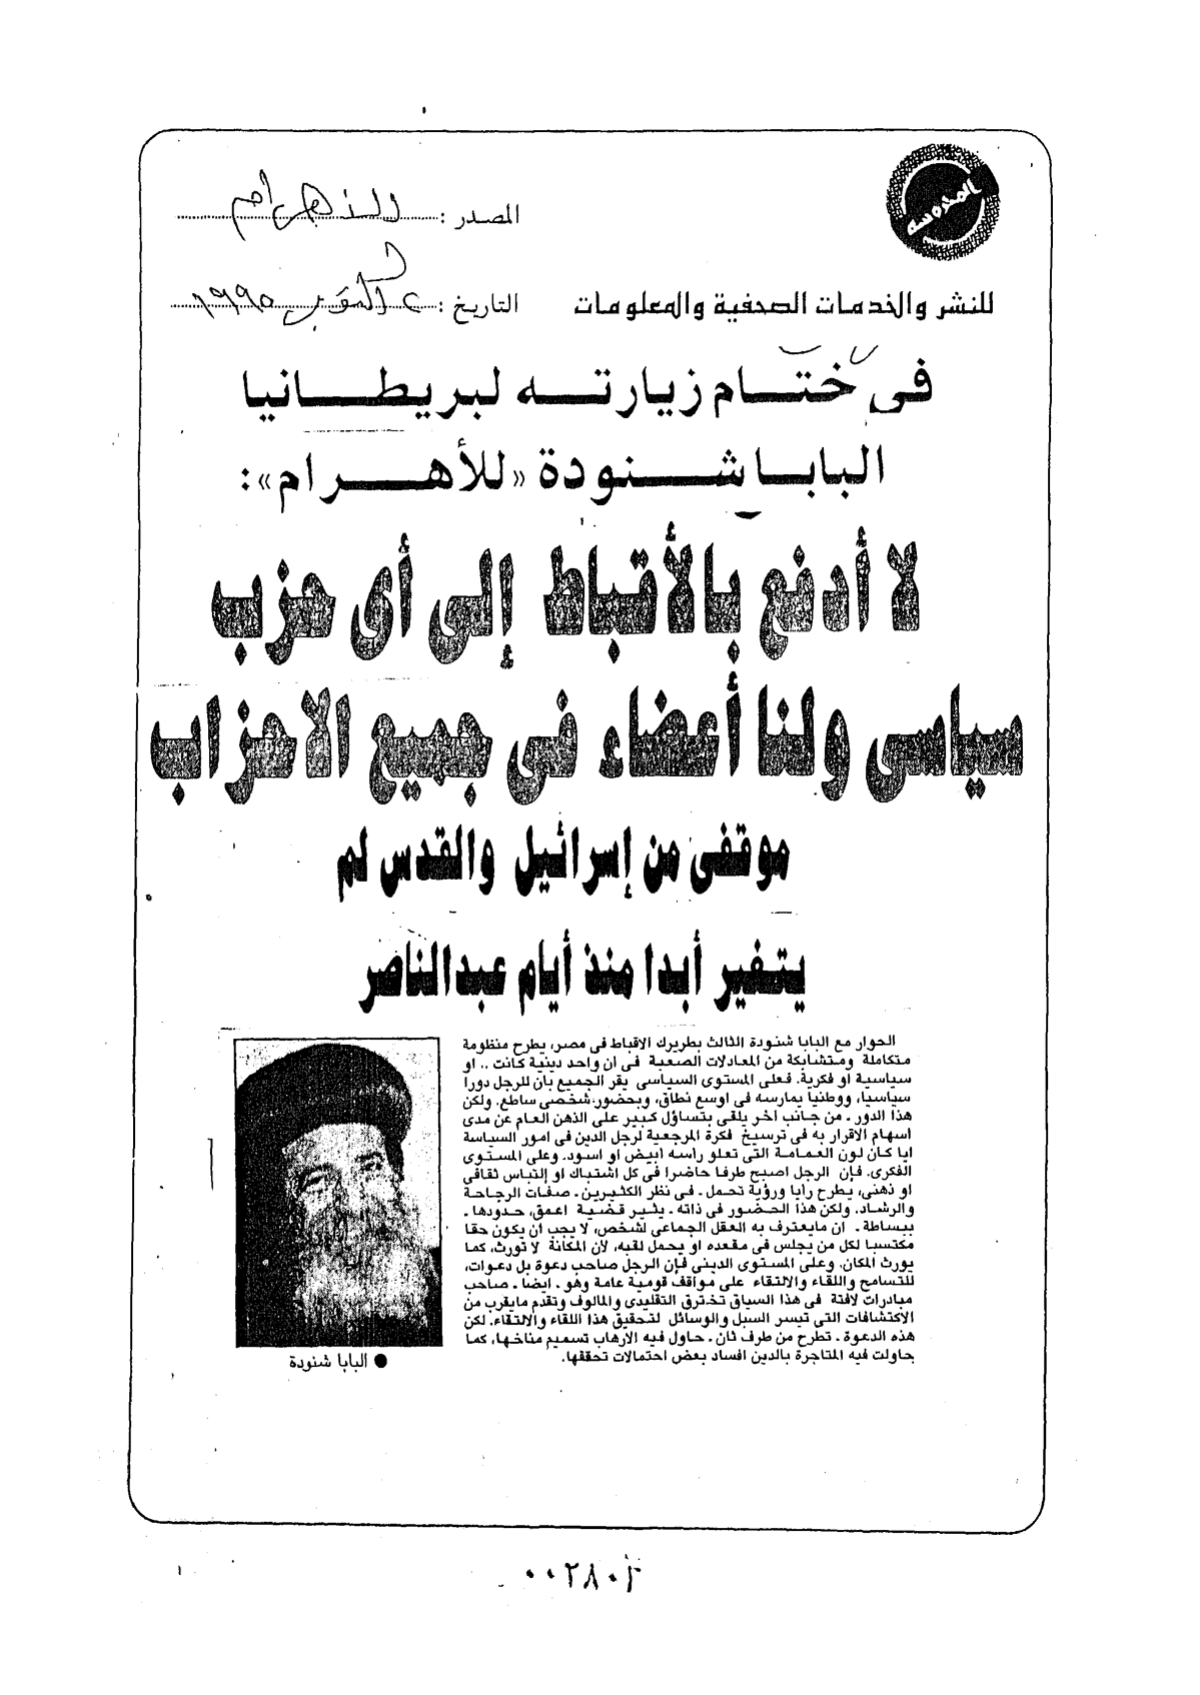 المصدر : الأهرام
للنشر والخدمات الصحفية والمعلومات
التاريخ : ٢ أكتوبر ١٩٩٥
فى ختام زيارته لبريطانيا
البابا شنودة «للأهرام»:
لا أدفع بالأقباط إلى أى حزب
سياسى ولنا أعضاء فى جميع الاحزاب
موقفى من إسرائيل والقدس لم
يتغير أبدا منذ أيام عبدالناصر
الحوار مع البابا شنودة الثالث بطريرك الاقباط فى مصر، يطرح منظومة
متكاملة ومتشابكة من المعادلات الصعبة فى ان واحد دينية كانت .. او
سياسية او فكرية. فعلى المستوى السياسى يقر الجميع بان للرجل دورا
سياسيا، ووطنيا يمارسه فى اوسع نطاق، وبحضور شخصى ساطع. ولكن
هذا الدور ـ من جانب اخر يلقى بتساؤل كبير على الذهن العام عن مدى
اسهام الاقرار به فى ترسيخ فكرة المرجعية لرجل الدين فى امور السياسة
ايا كان لون العمامة التى تعلو راسه ابيض او اسود. وعلى المستوى
الفكرى. فإن الرجل اصبح طرفا حاضرا فى كل اشتباك او إلتباس ثقافى
او ذهنى، يطرح رايا ورؤية تحمل ـ فى نظر الكثيرين ـ صفات الرجاحة
والرشاد. ولكن هذا الحضور فى ذاته ـ يثير قضية اعمق، حدودها ـ
ببساطة ـ ان مايعترف به العقل الجماعى لشخص، لا يجب ان يكون حقا
مكتسبا لكل من يجلس فى مقعده او يحمل لقبه، لان المكانة لا تورث، كما
يورث المكان. وعلى المستوى الدينى فإن الرجل صاحب دعوة بل دعوات،
للتسامح واللقاء والالتقاء على مواقف قومية عامة وهو ـ ايضا ـ صاحب
مبادرات لافتة فى هذا السياق تخترق التقليدى والمالوف وتقدم مايقرب من
الاكتشافات التى تيسر السبل والوسائل لتحقيق هذا اللقاء والالتقاء. لكن
هذه الدعوة ـ تطرح من طرف ثان ـ حاول فيه الإرهاب تسميم مناخها، كما
حاولت فيه المتاجرة بالدين افساد بعض احتمالات تحققها.
● البابا شنودة